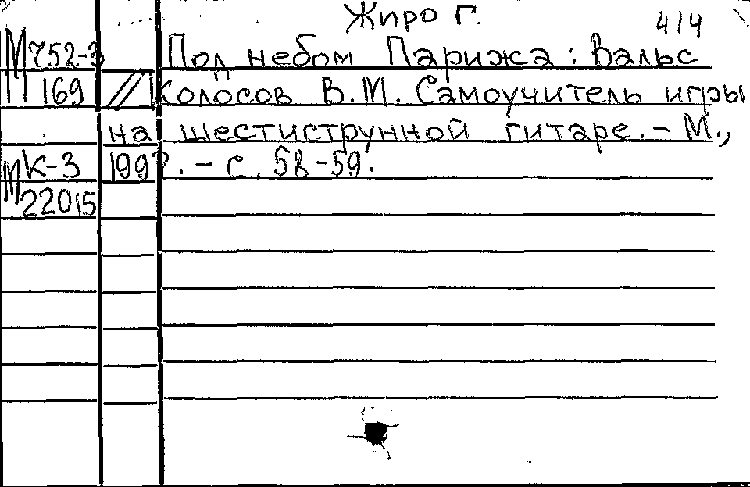 Жиро Г.
414
М 752-3 Под небом Парижа: Вальс
169 // Колосов В.М. Самоучитель игры
на шестиструнной гитаре. – М.,
М К-3 – с. 58-59.
22015